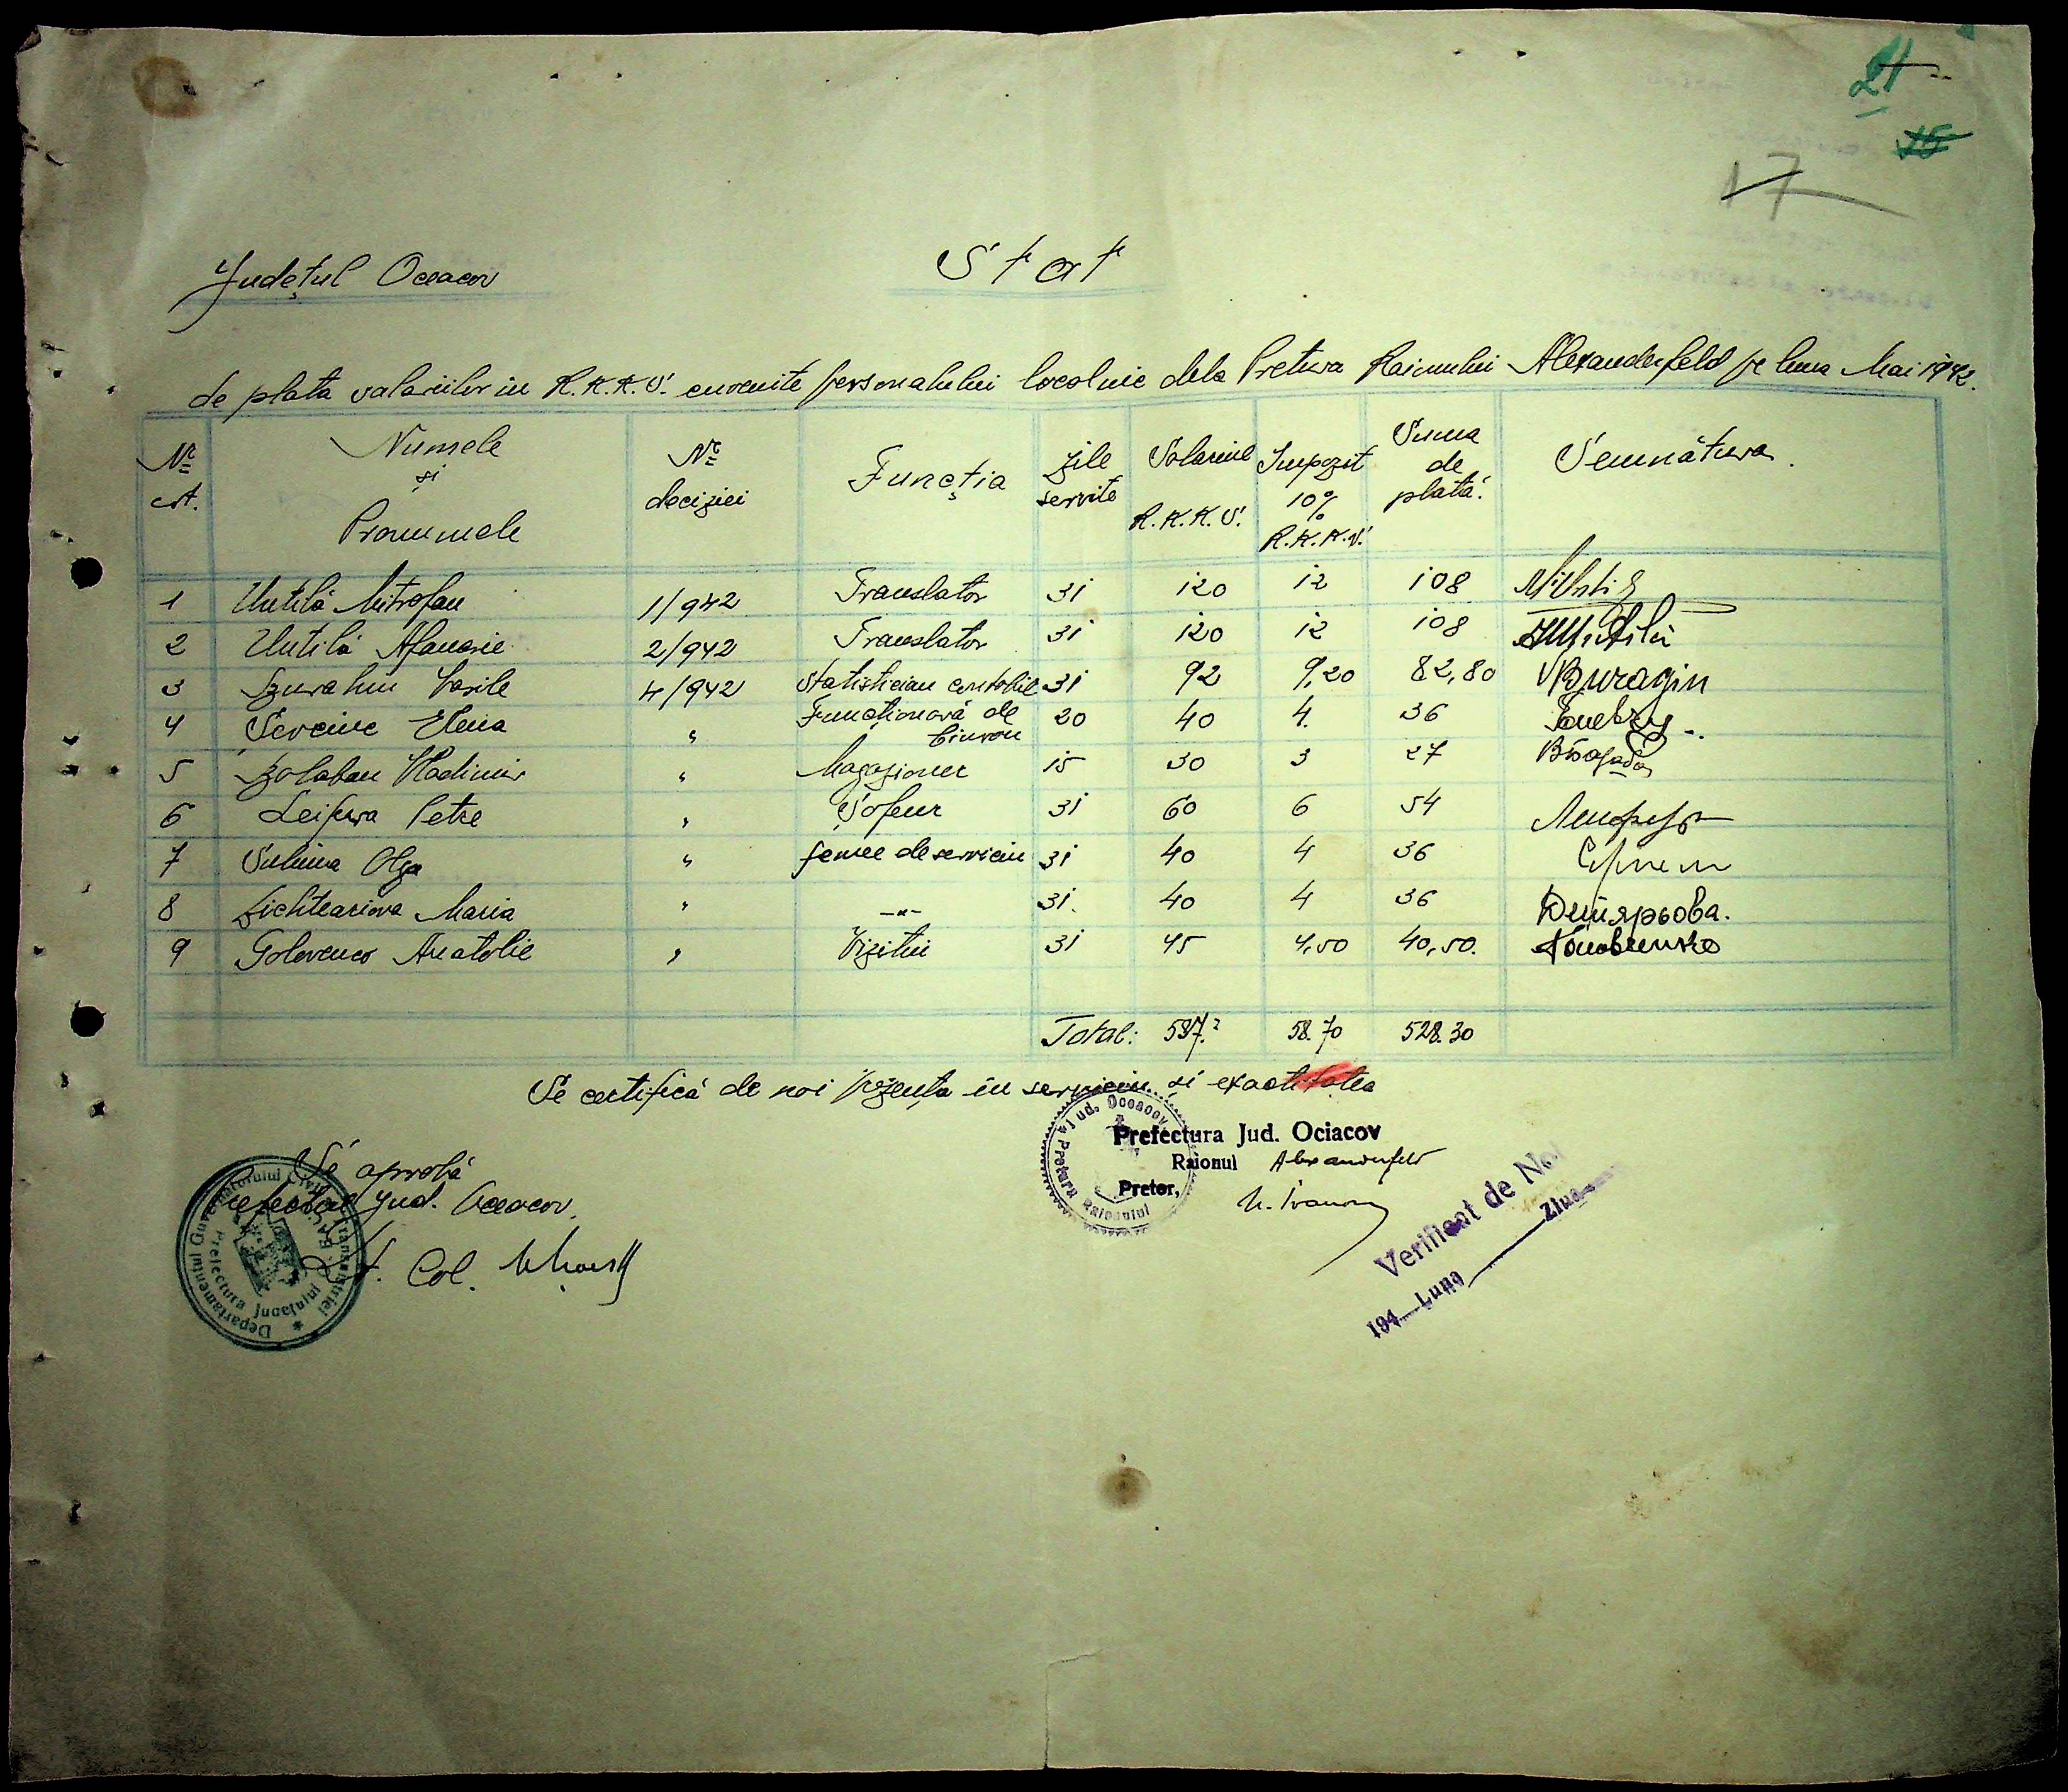 21
15
17
Județul Oceacov
Stat
de plata salariilor in R.K.K.S. cuvenite personalului localnic dela Pretura Raionului Alexanderfeld pe luna Mai 1942.
Nr. crt. Numele și Pronumele Nr. deciziei Funcția Zile servite Salariul R.K.K.S. Impozit 10% R.K.K.S. Suma de plată. Semnătura.
1 Untilă Mitrofan 1/942 Translator 31 120 12 108
2 Untilă Afanasie 2/942 Translator 31 120 12 108
3 Vasile 4/942 Statistician contabil 31 92 9,20 82,80 VBuragin
4 Elena " Funcționară de biurou 20 40 4. 36
5 Vladimir " Magazioner 15 30 3 27
6 Petre " Șofeur 31 60 6 54
7 Olga " femee de serviciu 31 40 4 36
8 Maria " -"- 31. 40 4 36
9 Golovenco Anatolie " Vizitiu 31 45 4,50 40,50.
Total: 587. 58.70 528.30
Se certifică de noi prezența în serviciu și exactitatea
Pretura Raionului Jud. Oceacov
Prefectura Jud. Ociacov
Raionul Alexanderfeld
Pretor,
Se aprobă
Prefectul Jud. Oceacov
Lt. Col.
Departamentul Guvernatorului Civil Transnistriei
Prefectura Județului
Verificat de Noi
194 Luna Ziua